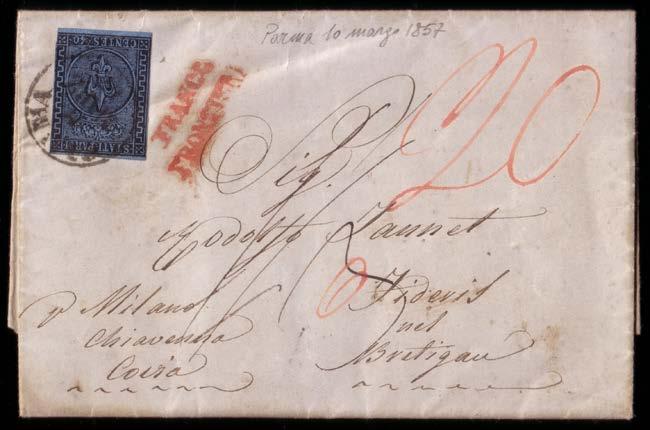 Parma 10 marzo 1857
STATI PARM
CENTES. 40
FRANCO
FRONTIERA
20
Sig.
Rodolfo Jannet
6
Fideris
nel
Pretigau
p Milano
Chiavenna
Coira